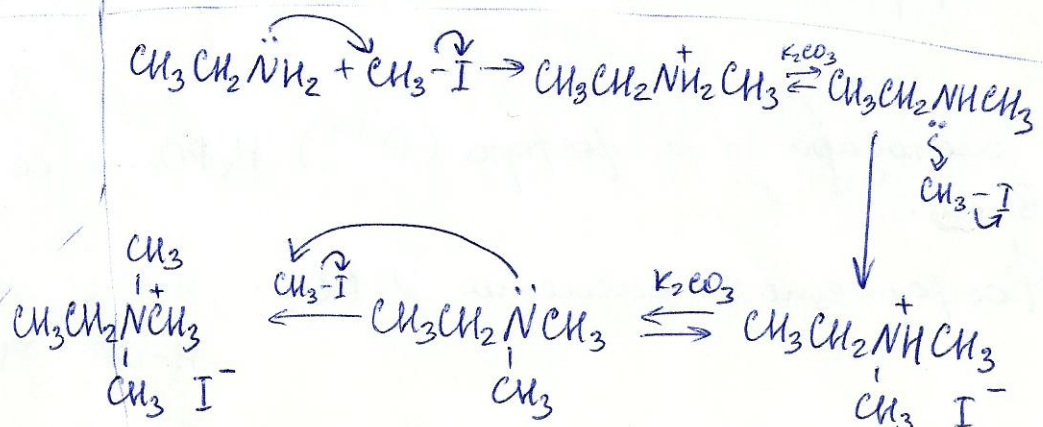 CH₃CH₂N̈H₂ + CH₃-I → CH₃CH₂N⁺H₂CH₃ ⇌ K₂CO₃ CH₃CH₂NHCH₃
CH₃-I
CH₃
CH₃-I
K₂CO₃
CH₃CH₂N⁺CH₃ ← CH₃CH₂N̈CH₃ ⇌ CH₃CH₂N⁺HCH₃
CH₃ I⁻ CH₃ CH₃ I⁻